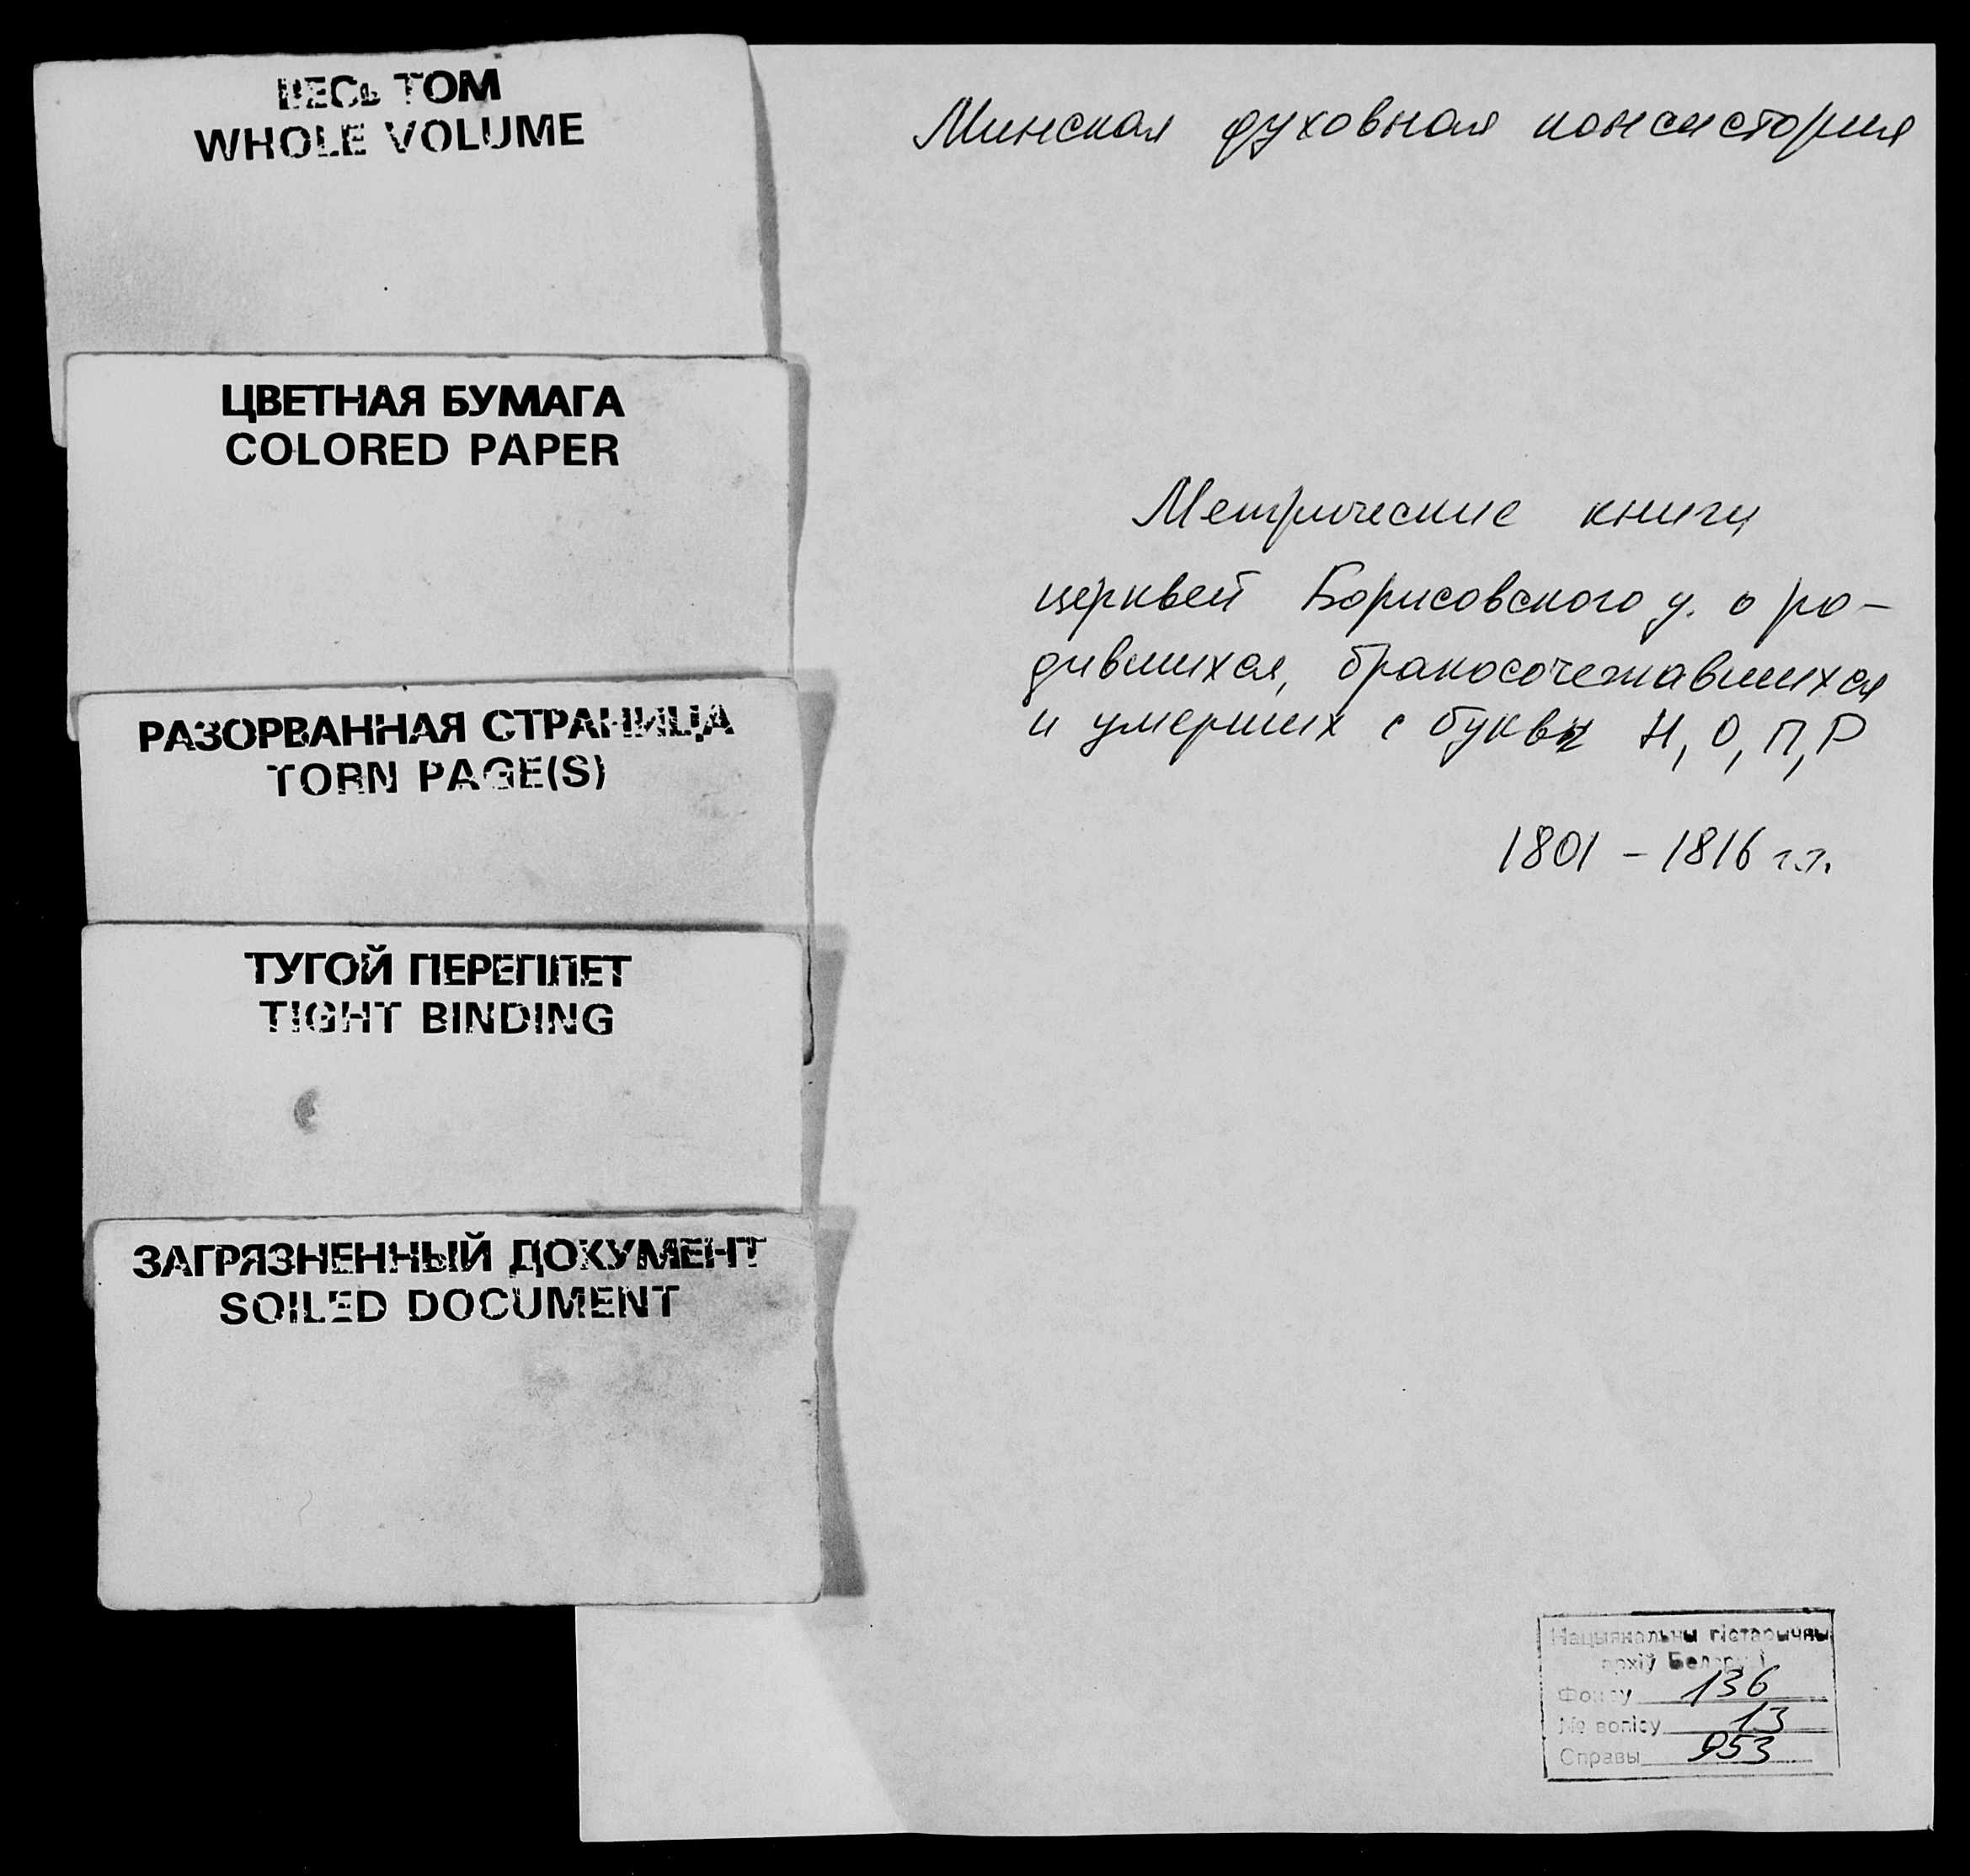 ВЕСЬ ТОМ
WHOLE VOLUME
ЦВЕТНАЯ БУМАГА
COLORED PAPER
РАЗОРВАННАЯ СТРАНИЦА
TORN PAGE(S)
ТУГОЙ ПЕРЕПЛЕТ
TIGHT BINDING
ЗАГРЯЗНЕННЫЙ ДОКУМЕНТ
SOILED DOCUMENT
Минская духовная консистория
Метрические книги
церквей Борисовского у. о ро-
дившихся, бракосочетавшихся
и умерших с буквы Н, О, П, Р
1801 – 1816 г.г.
Нацыянальны гістарычны
архіў Беларусі
Фонду 136
№ вопісу 13
Справы 953